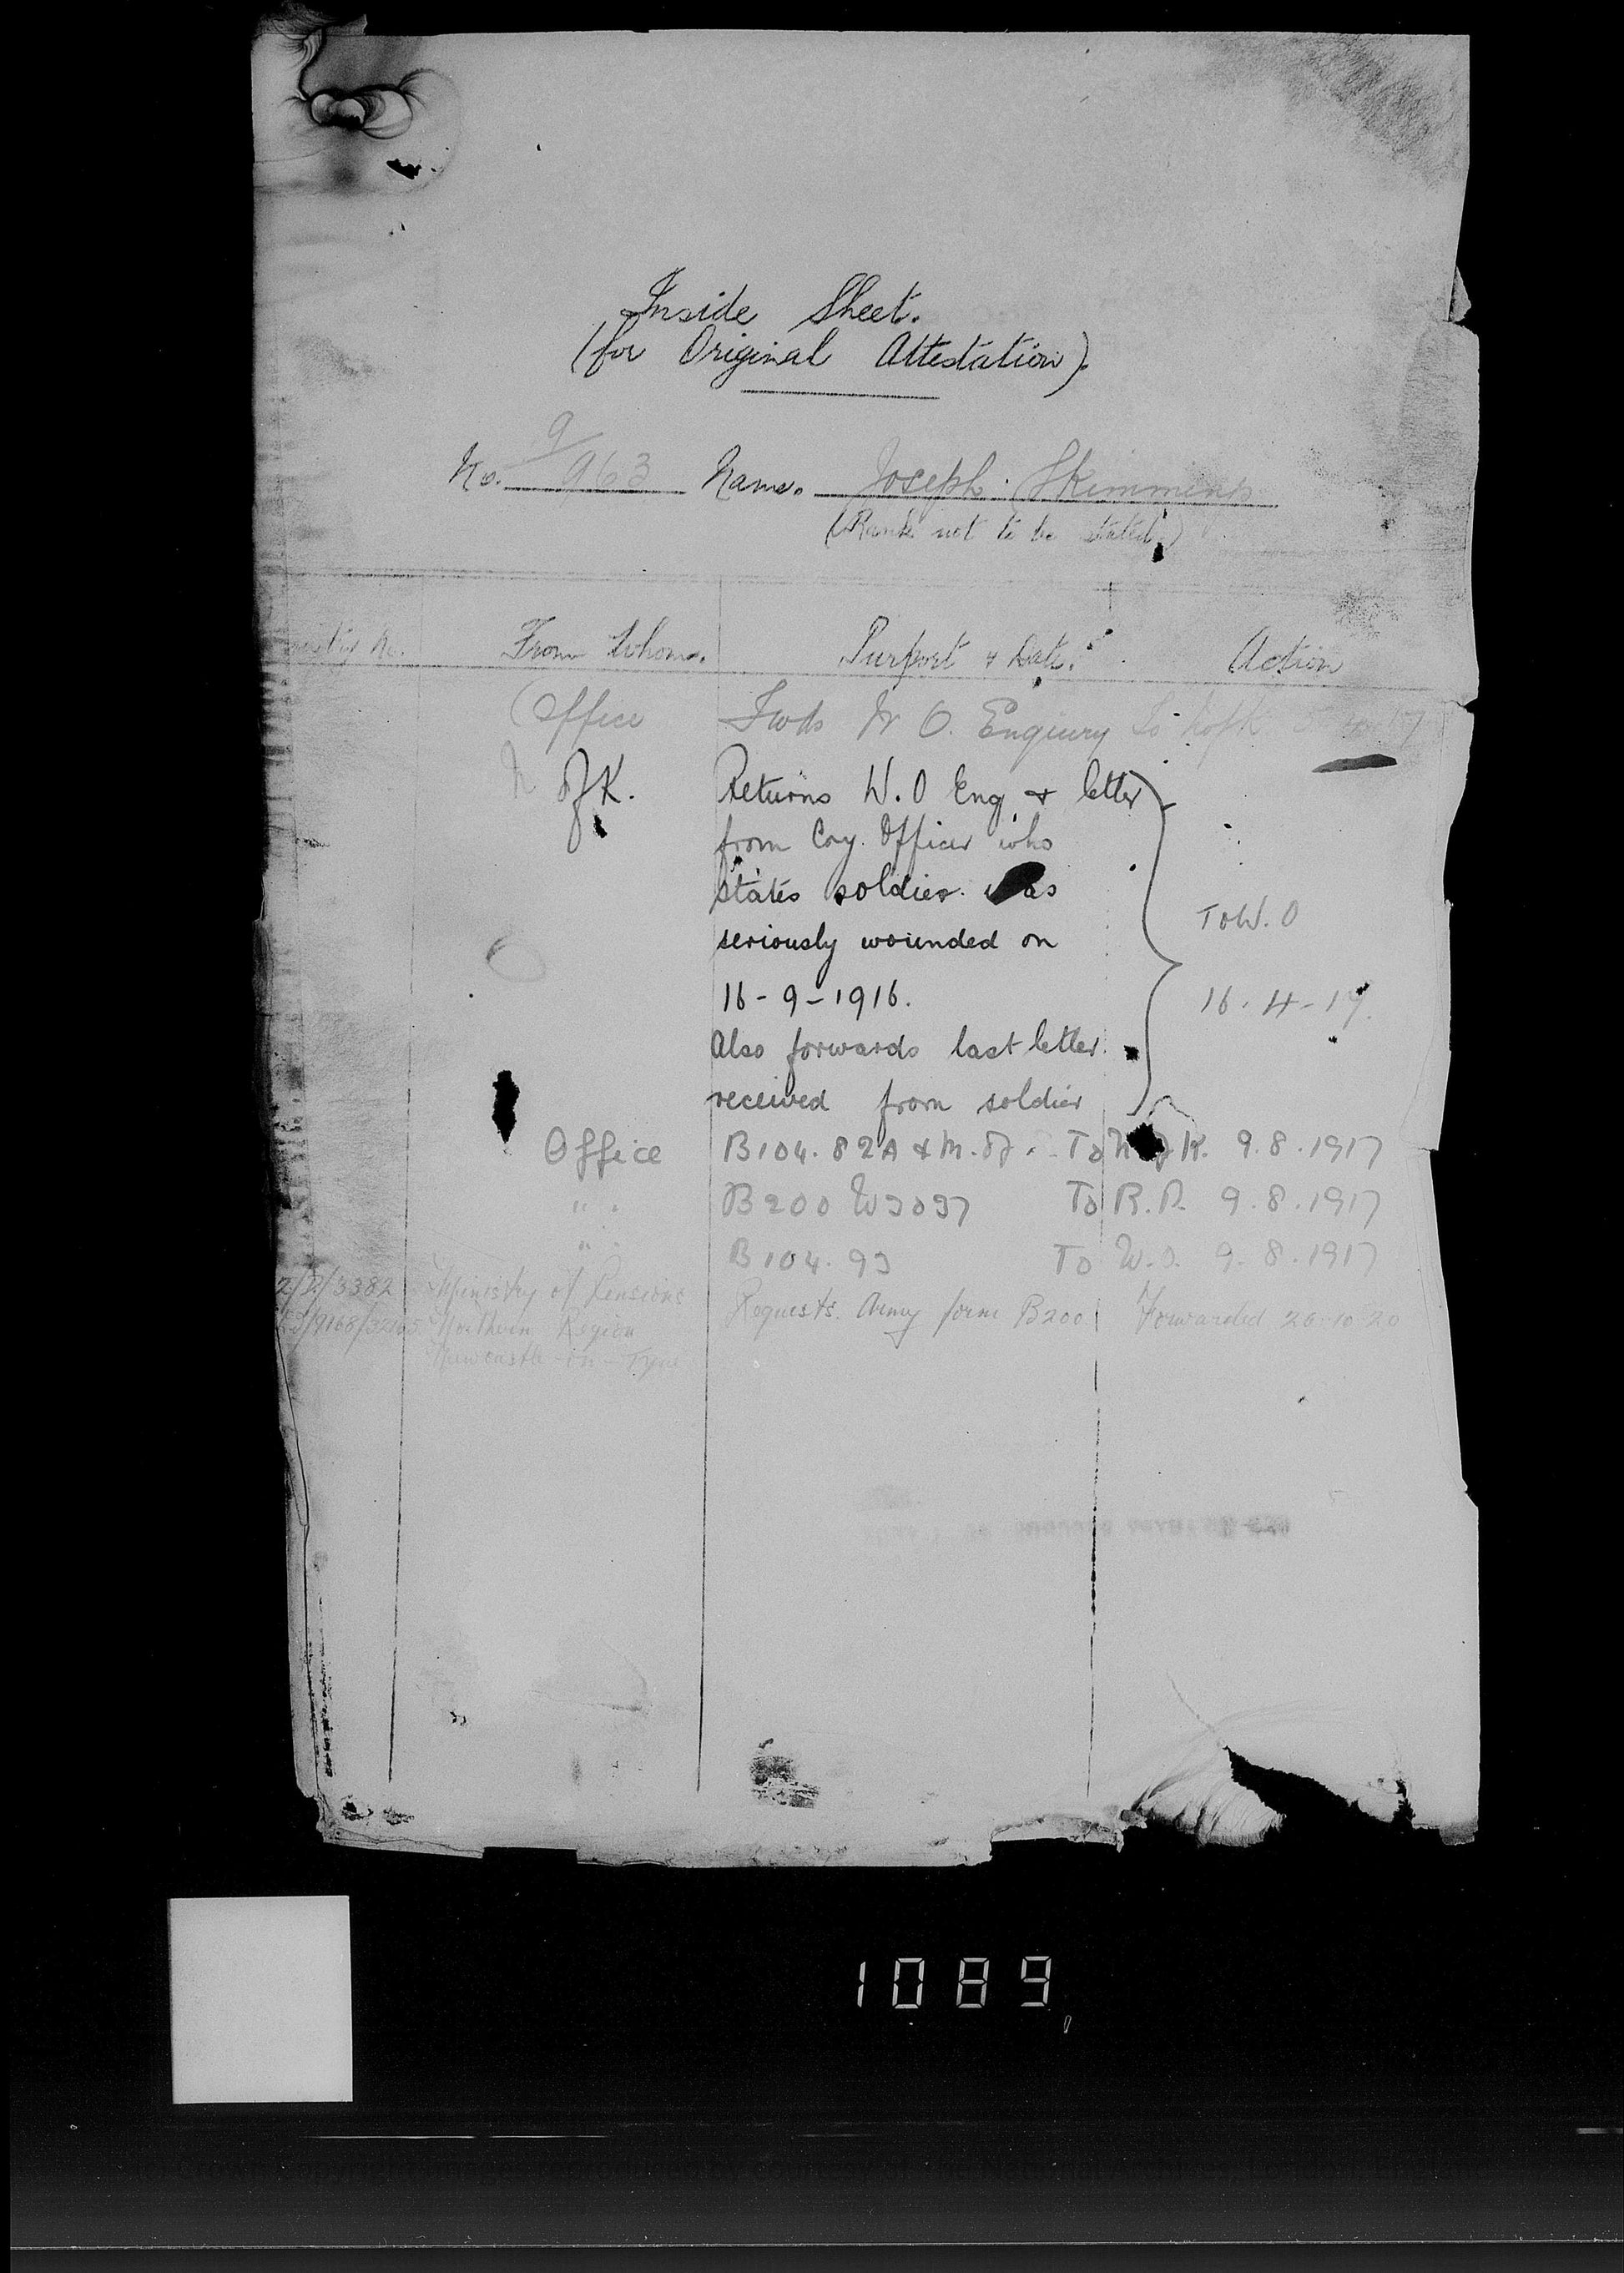 Inside Sheet.
(for Original Attestation).
No. 9/963 Name. Joseph Skimmins
(Rank not to be stated)
No. From Whom. Purport & Date. Action
Office Fwds W O. Enquiry To NofK 5 4 17
N of K. Returns W.O Enq & letter
from Coy. Officer who
states soldier was
seriously wounded on
16-9-1916.
Also forwards last letter
received from soldier
To W.O
16.4-17.
Office B104.82A & M. To N of K. 9.8.1917
" B200 W3037 To R.P. 9.8.1917
" B104.93 To W.O. 9.8.1917
2/3382 Ministry of Pensions Requests Army form B200 Forwarded 26-10-20
/9168/ Northern Region
Newcastle-on-Tyne
1089